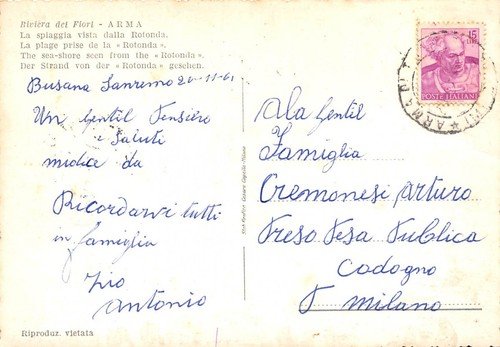 Riviera dei Fiori - ARMA
La spiaggia vista dalla Rotonda.
La plage prise de la «Rotonda».
The sea-shore seen from the «Rotonda».
Der Strand von der «Rotonda» gesehen.
Busana Sanremo 20-11-61
Un Gentil Pensiero
e Saluti
midice da
Ricordarvi tutti
in famiglia
Zio
Antonio
Riproduz. vietata
15
POSTE ITALIANE
ARMA
Ala Gentil
Famiglia
Cremonesi Arturo
Preso Pesa Publica
Codogno
P Milano